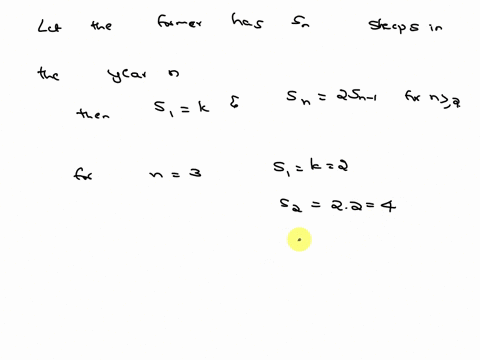 Let the former has Sn sheeps in
the year n
then S₁ = k & Sn = 2Sn-1 for n≥2
for n = 3 S₁ = k = 2
S₂ = 2.2 = 4